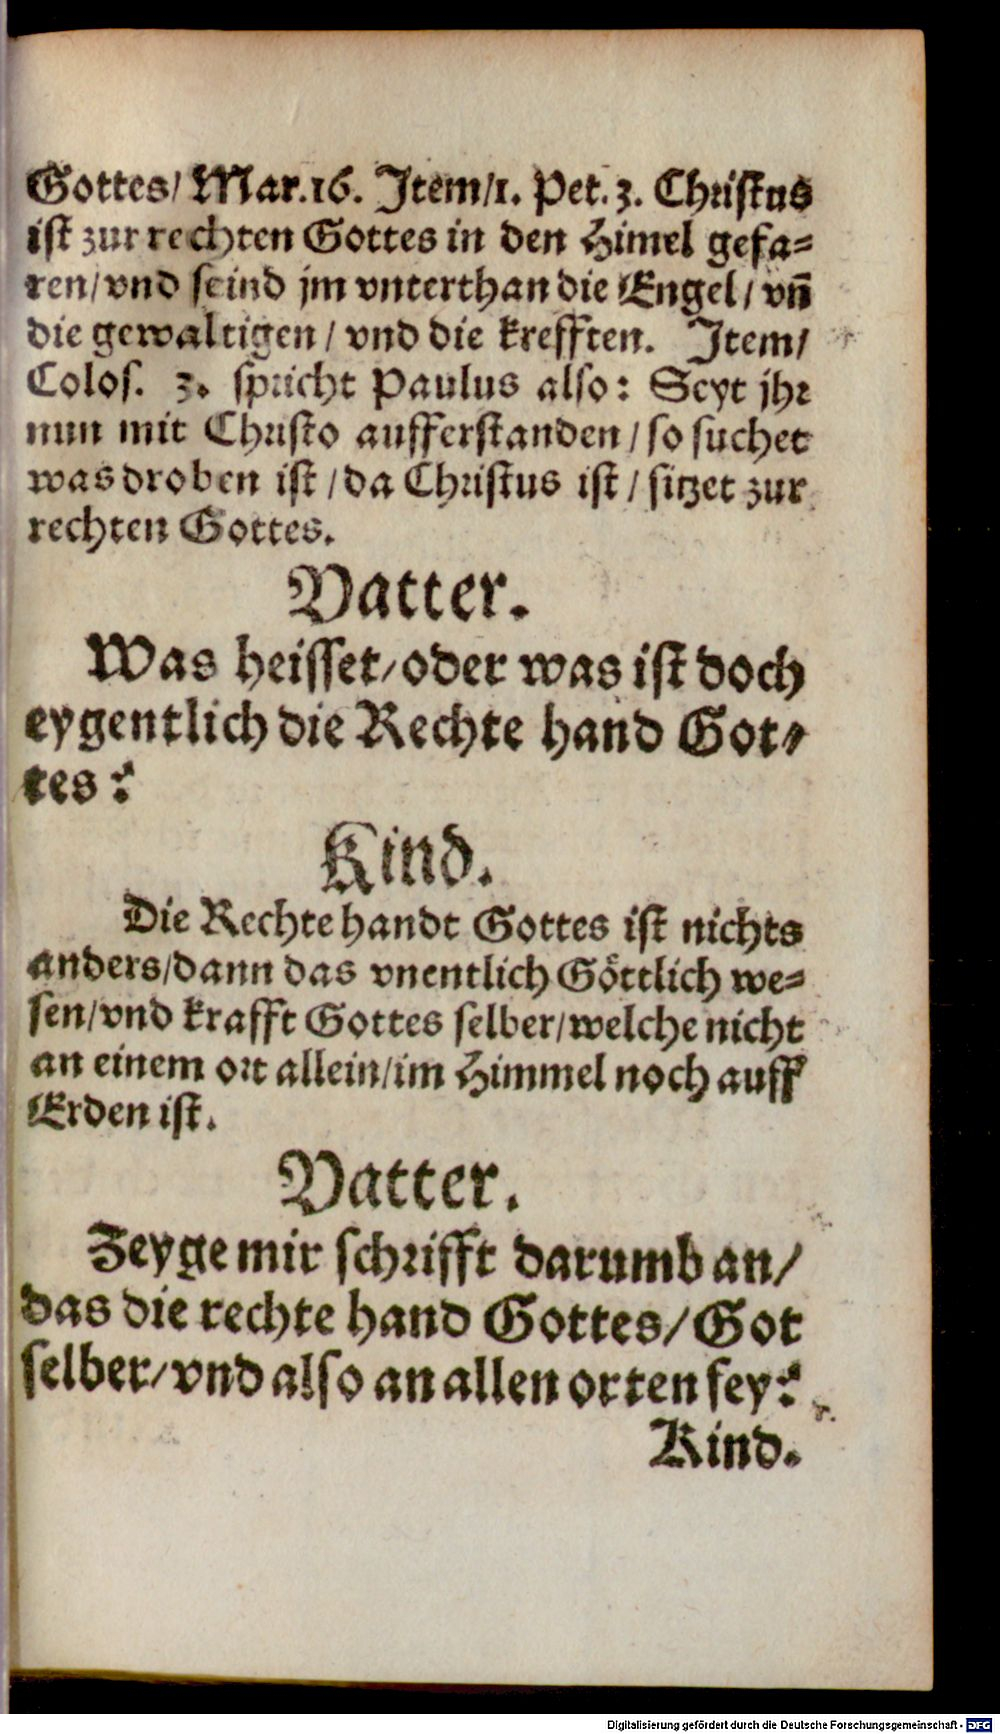 Gottes/ Mar.16. Item/1. Pet. 3. Christus
ist zur rechten Gottes in den Himel gefa=
ren/vnd seind jm vnterthan die Engel/ vñ
die gewaltigen/ vnd die krefften. Item/
Colos. 3. spricht Paulus also: Seyt jhr
nun mit Christo aufferstanden/so suchet
was droben ist/da Christus ist/ sitzet zur
rechten Gottes.
Vatter.
Was heisset/oder was ist doch
eygentlich die Rechte hand Got=
tes?
Kind.
Die Rechte handt Gottes ist nichts
anders/dann das vnentlich Göttlich we=
sen/vnd krafft Gottes selber/welche nicht
an einem ort allein/im Himmel noch auff
Erden ist.
Vatter.
Zeyge mir schrifft darumb an/
das die rechte hand Gottes/Got
selber/vnd also an allen orten sey?
Kind.
Digitalisierung gefördert durch die Deutsche Forschungsgemeinschaft - DFG